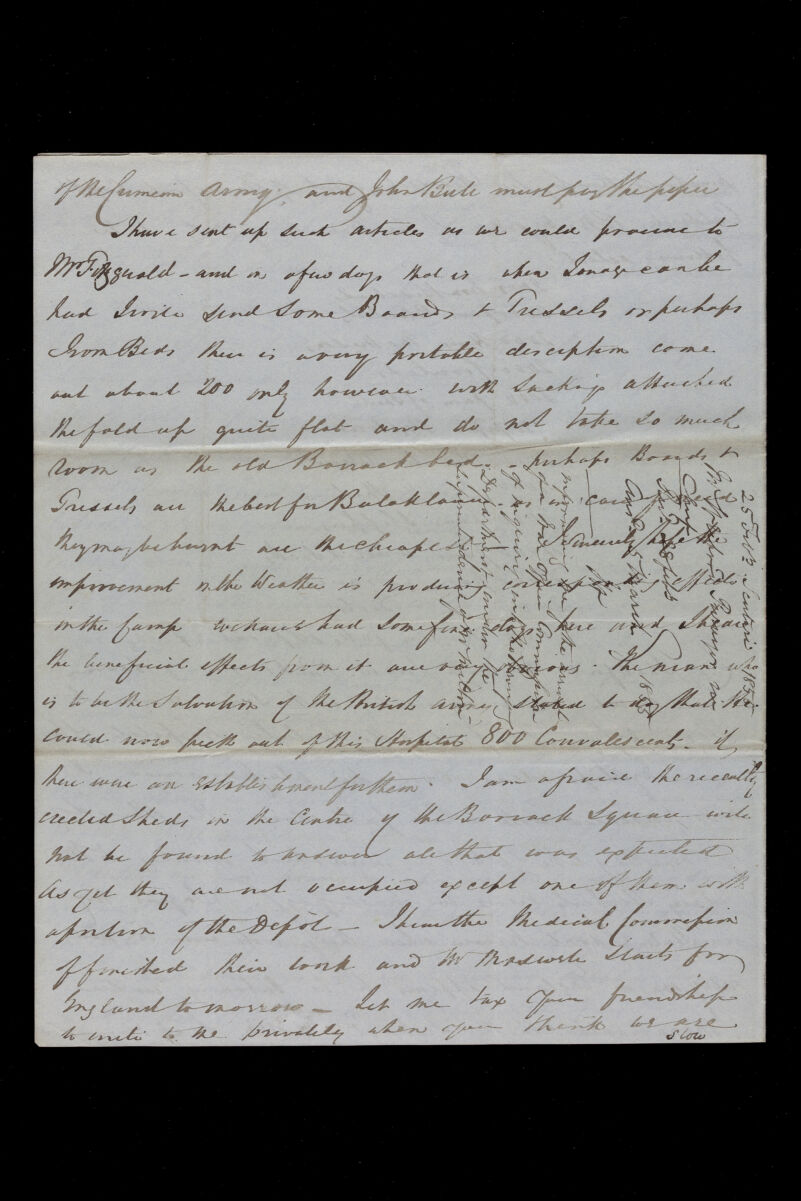 of the Crimean Army and John Bull must pay the piper
I have sent up such articles as we could procure to
Mr Fitzgerald - and in a few days that is when Tonage can be
had I will send some Boards & Tressels or perhaps
Iron Beds there is a very portable description come
out about 200 only however with Sacking attached
the fold up quite flat and do not take so much
room as the old Barrack bed - perhaps Boards &
Tressels are the best for Balaklava as in case of need
they may be burnt are the cheapest I sincerely hope the
improvement in the Weather is producing corresponding effects
in the Camp we have had some fine days here and I hear
the beneficial effects from it are very obvious. The man who
is to be the Salvation of the British army stated to day that He
could now pick out of this Hospital 800 Convalescents - if
there were an Establishment for them. I am afraid the recently
erected Sheds in the Centre of the Barrack Square will
not be found to answer all that was expected
As yet they are not occupied except one of them with
a portion of the Depôt - I hear the Medical Commission
finished their work and Mr starts for
England tomorrow - Let me tax your friendship
to write to me privately when you think we are
slow
25 Feby Scutari 1855
Mr Purveyor
Ansd 5 March 1855
informing me of the arrival
of a War Office Commission
of inquiry into the Purveying
Department under the
Superintendence of